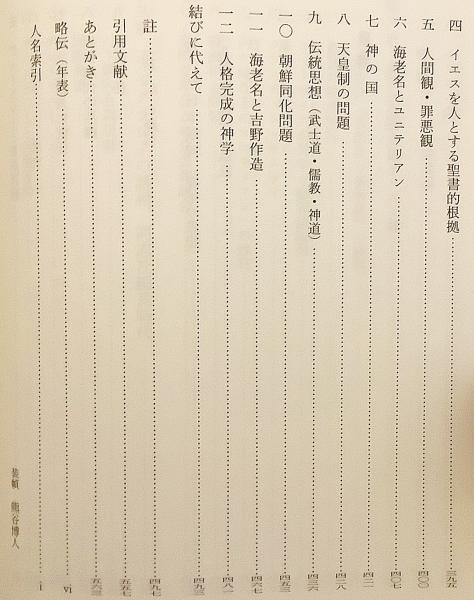 四 イエスを人とする聖書的根拠……三九五
五 人間観・罪悪観……四〇〇
六 海老名とユニテリアン……四〇七
七 神の国……四二一
八 天皇制の問題……四二八
九 伝統思想（武士道・儒教・神道）……四三六
一〇 朝鮮同化問題……四五三
一一 海老名と吉野作造……四六七
一二 人格完成の神学……四八一
結びに代えて……四九三
註……四九七
引用文献……五五七
あとがき……五六三
略伝（年表）……vi
人名索引……i
装幀 熊谷博人